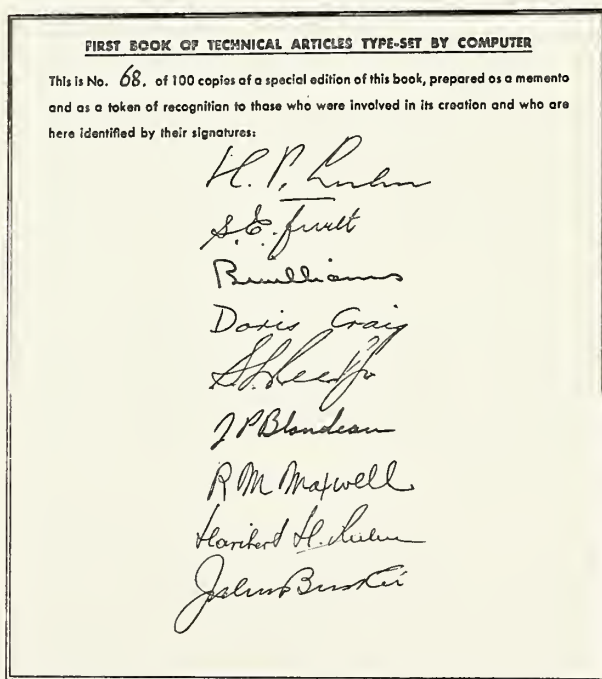 FIRST BOOK OF TECHNICAL ARTICLES TYPE-SET BY COMPUTER
This is No. 68, of 100 copies of a special edition of this book, prepared as a memento
and as a token of recognition to those who were involved in its creation and who are
here identified by their signatures:
H. P. Luhn
S. E. Furth
B Williams
Doris Craig
J P Blondeau
R M Maxwell
H.
John